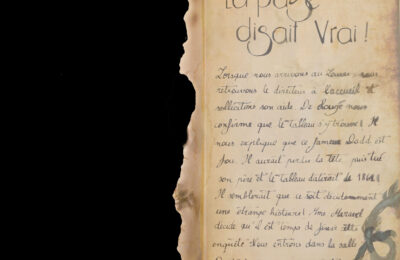 La page
disait Vrai !
Lorsque nous arrivons au Louvre, nous
retrouvons le directeur à l'accueil et
sollicitons son aide. De nous
confirme que le tableau s'y trouve ! Il
nous explique que ce fameux Dadd est
fou. Il aurait perdu la tête, puis tué
son père et le tableau daterait de
Il semblerait que ce soit décidemment
une étrange histoire ! Mme
décide qu'il est temps de finir cette
enquête. Nous entrons dans la salle